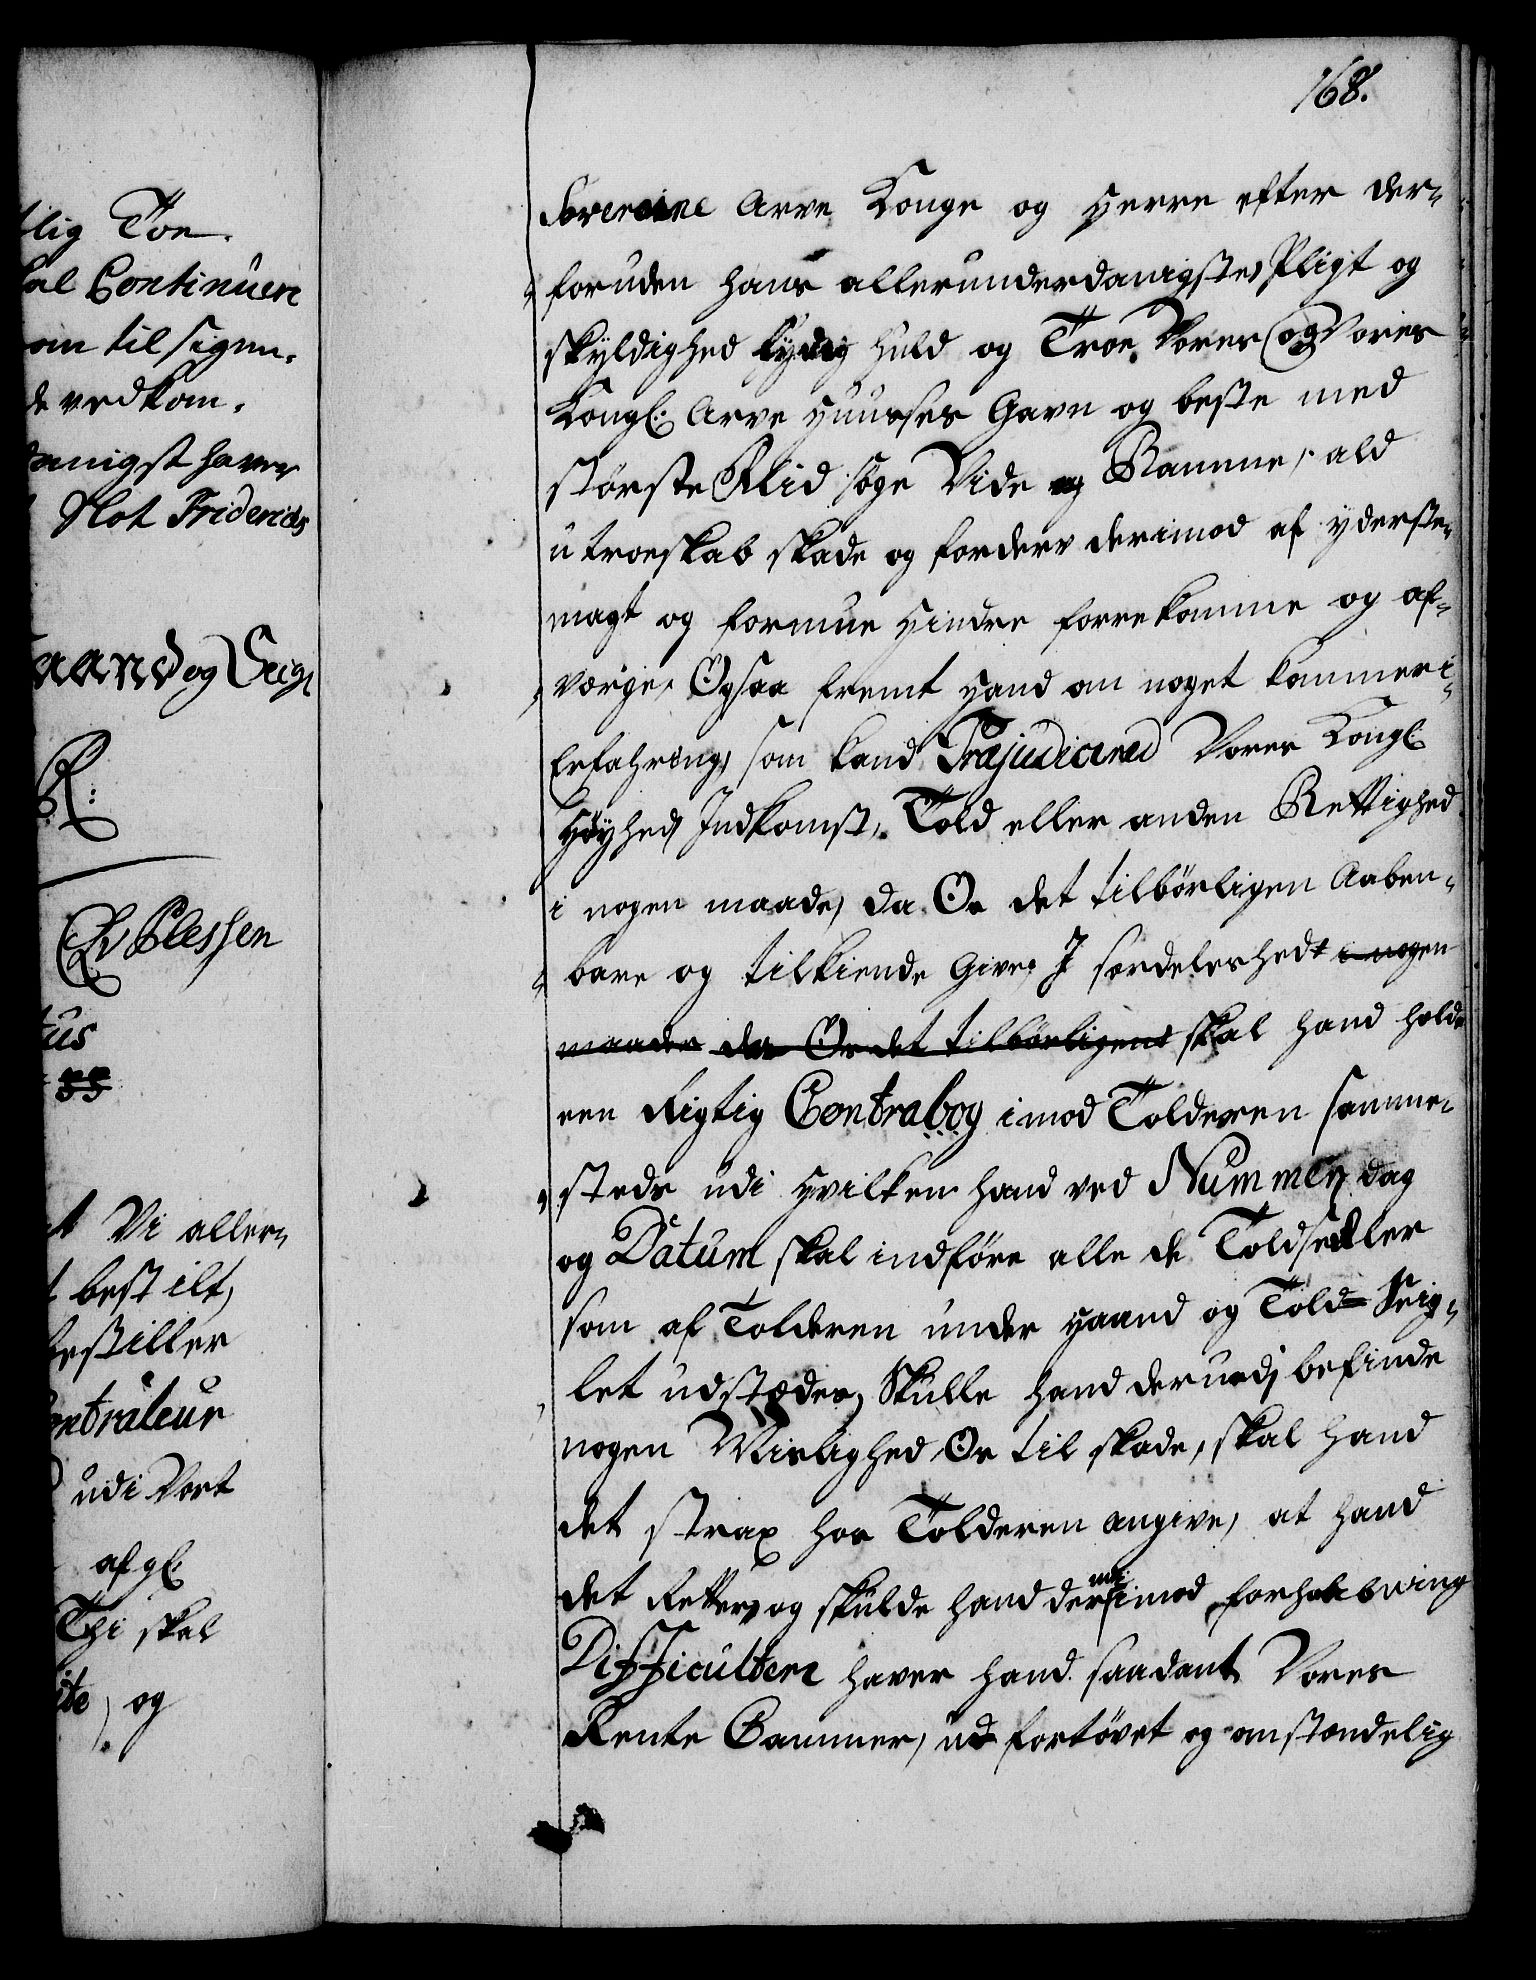 lig Toe
al Continuere
om til sigen.
de vedkom.
danigst haver
Slot Friderichs
aand og Seigl
R:
CA v Plessen
tus
Vi aller=
bestilt,
bestiller
ontrateur
udi Vort
afgl:
Thi skal
ite, og
168.
Sovereine Arve Konge og Herre efter der=
foruden hans allerunderdanigste Pligt og
skyldighed Lydig huld og Troe, Vores og Vores
Kongl: Arve Huuses Gavn og beste med
störste Flid söge Vide og Ramme, ald
utroeskab skade og forderv derimod af yderste
magt og formue Hindre forrekomme og af=
værge, Ogsaa fremt Hand om noget kommer i
Erfahring, som kand Præjudicered Vores Kongl:
Höyhed, Indkomst, Told eller anden Rettighed
i nogen maade, da Os det tilbörligen Aaben=
bare og tilkiende Give, I særdeleshedt i nogen
maader da Os det tilbörligent skal hand holde
een Rigtig Contrabog imod Tolderen samme=
steds udi Hvilken hand ved Nummer, dag
og Datum skal indföre alle de Toldsedler
som af Tolderen under Haand og Told=Seig=
let udstædes, Skulle hand derudj befinde
nogen Mislighed Os til skade, skal hand
det strax hos Tolderen angive, at hand
det Retter, og skulde hand der imod forhabning
udi
Difficultere haver hand saadant Vores
Rente Cammer, ud fortövet og omstændelig